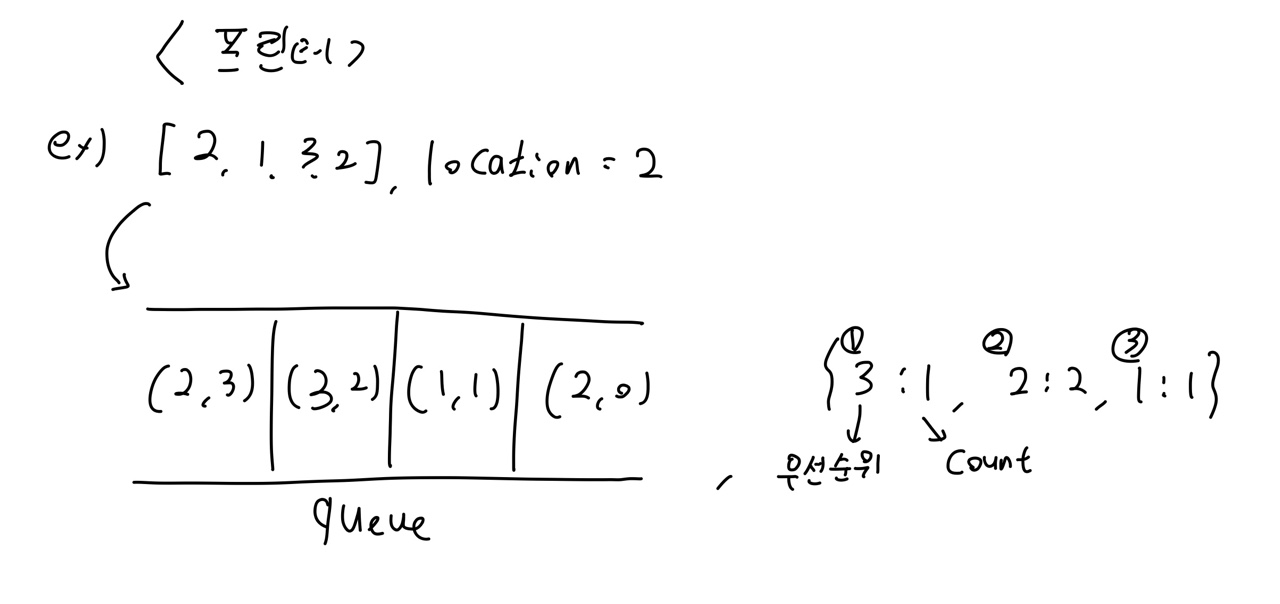 <프린터>
ex) [2, 1, 3, 2], location = 2
(2,3) (3,2) (1,1) (2,0)
queue
① ② ③
{3:1, 2:2, 1:1}
, 우선순위 Count